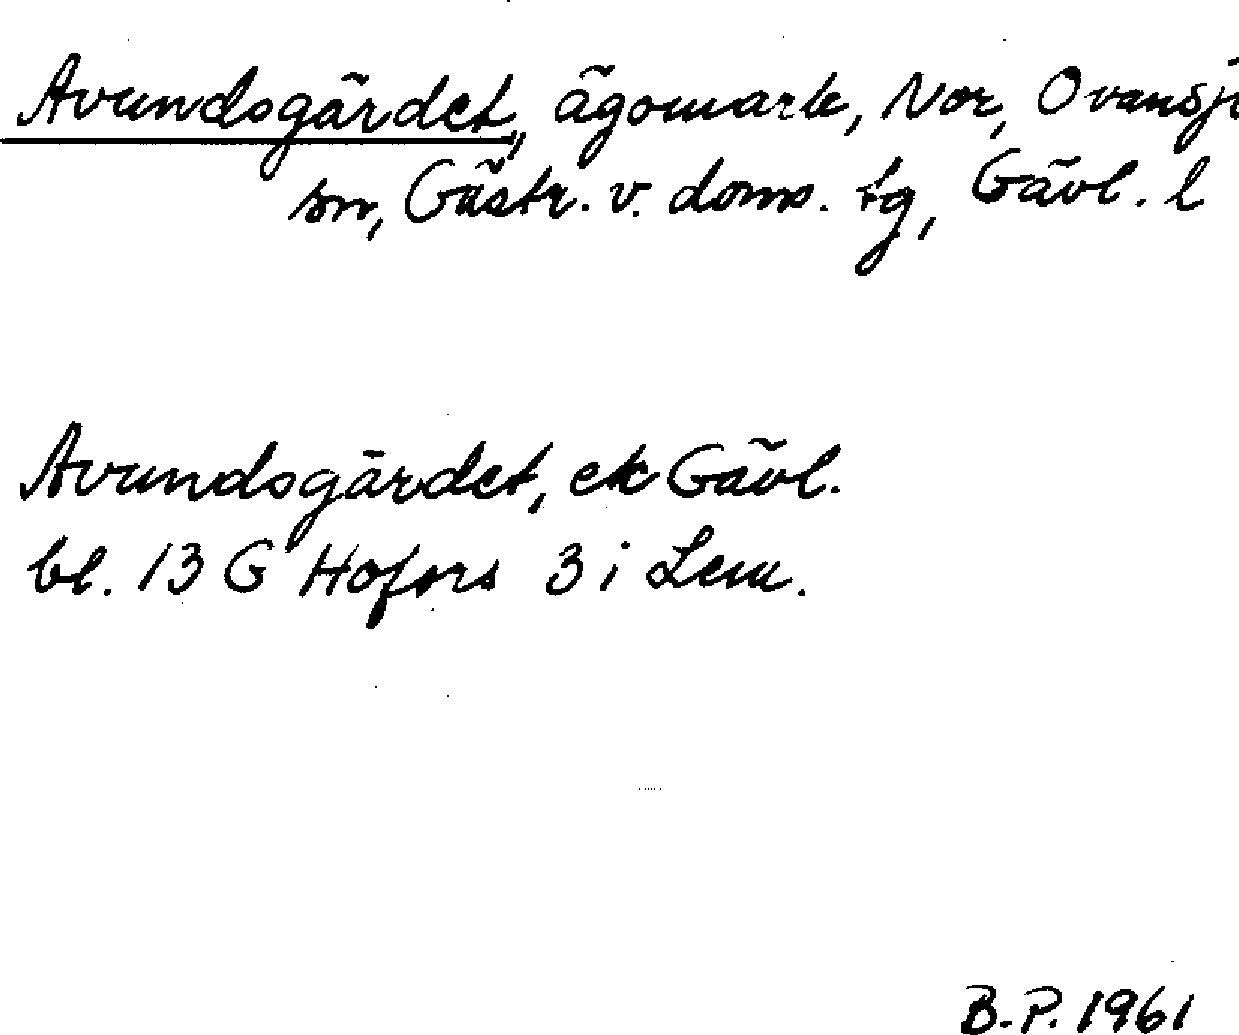 Avundsgärdet, ägomark, Nor, Ovansj
sn, Gästr. v. doms. tg, Gävl. l
Avundsgärdet, ek Gävl.
bl. 13 G Hofors 3 i Lem.
B.P. 1961